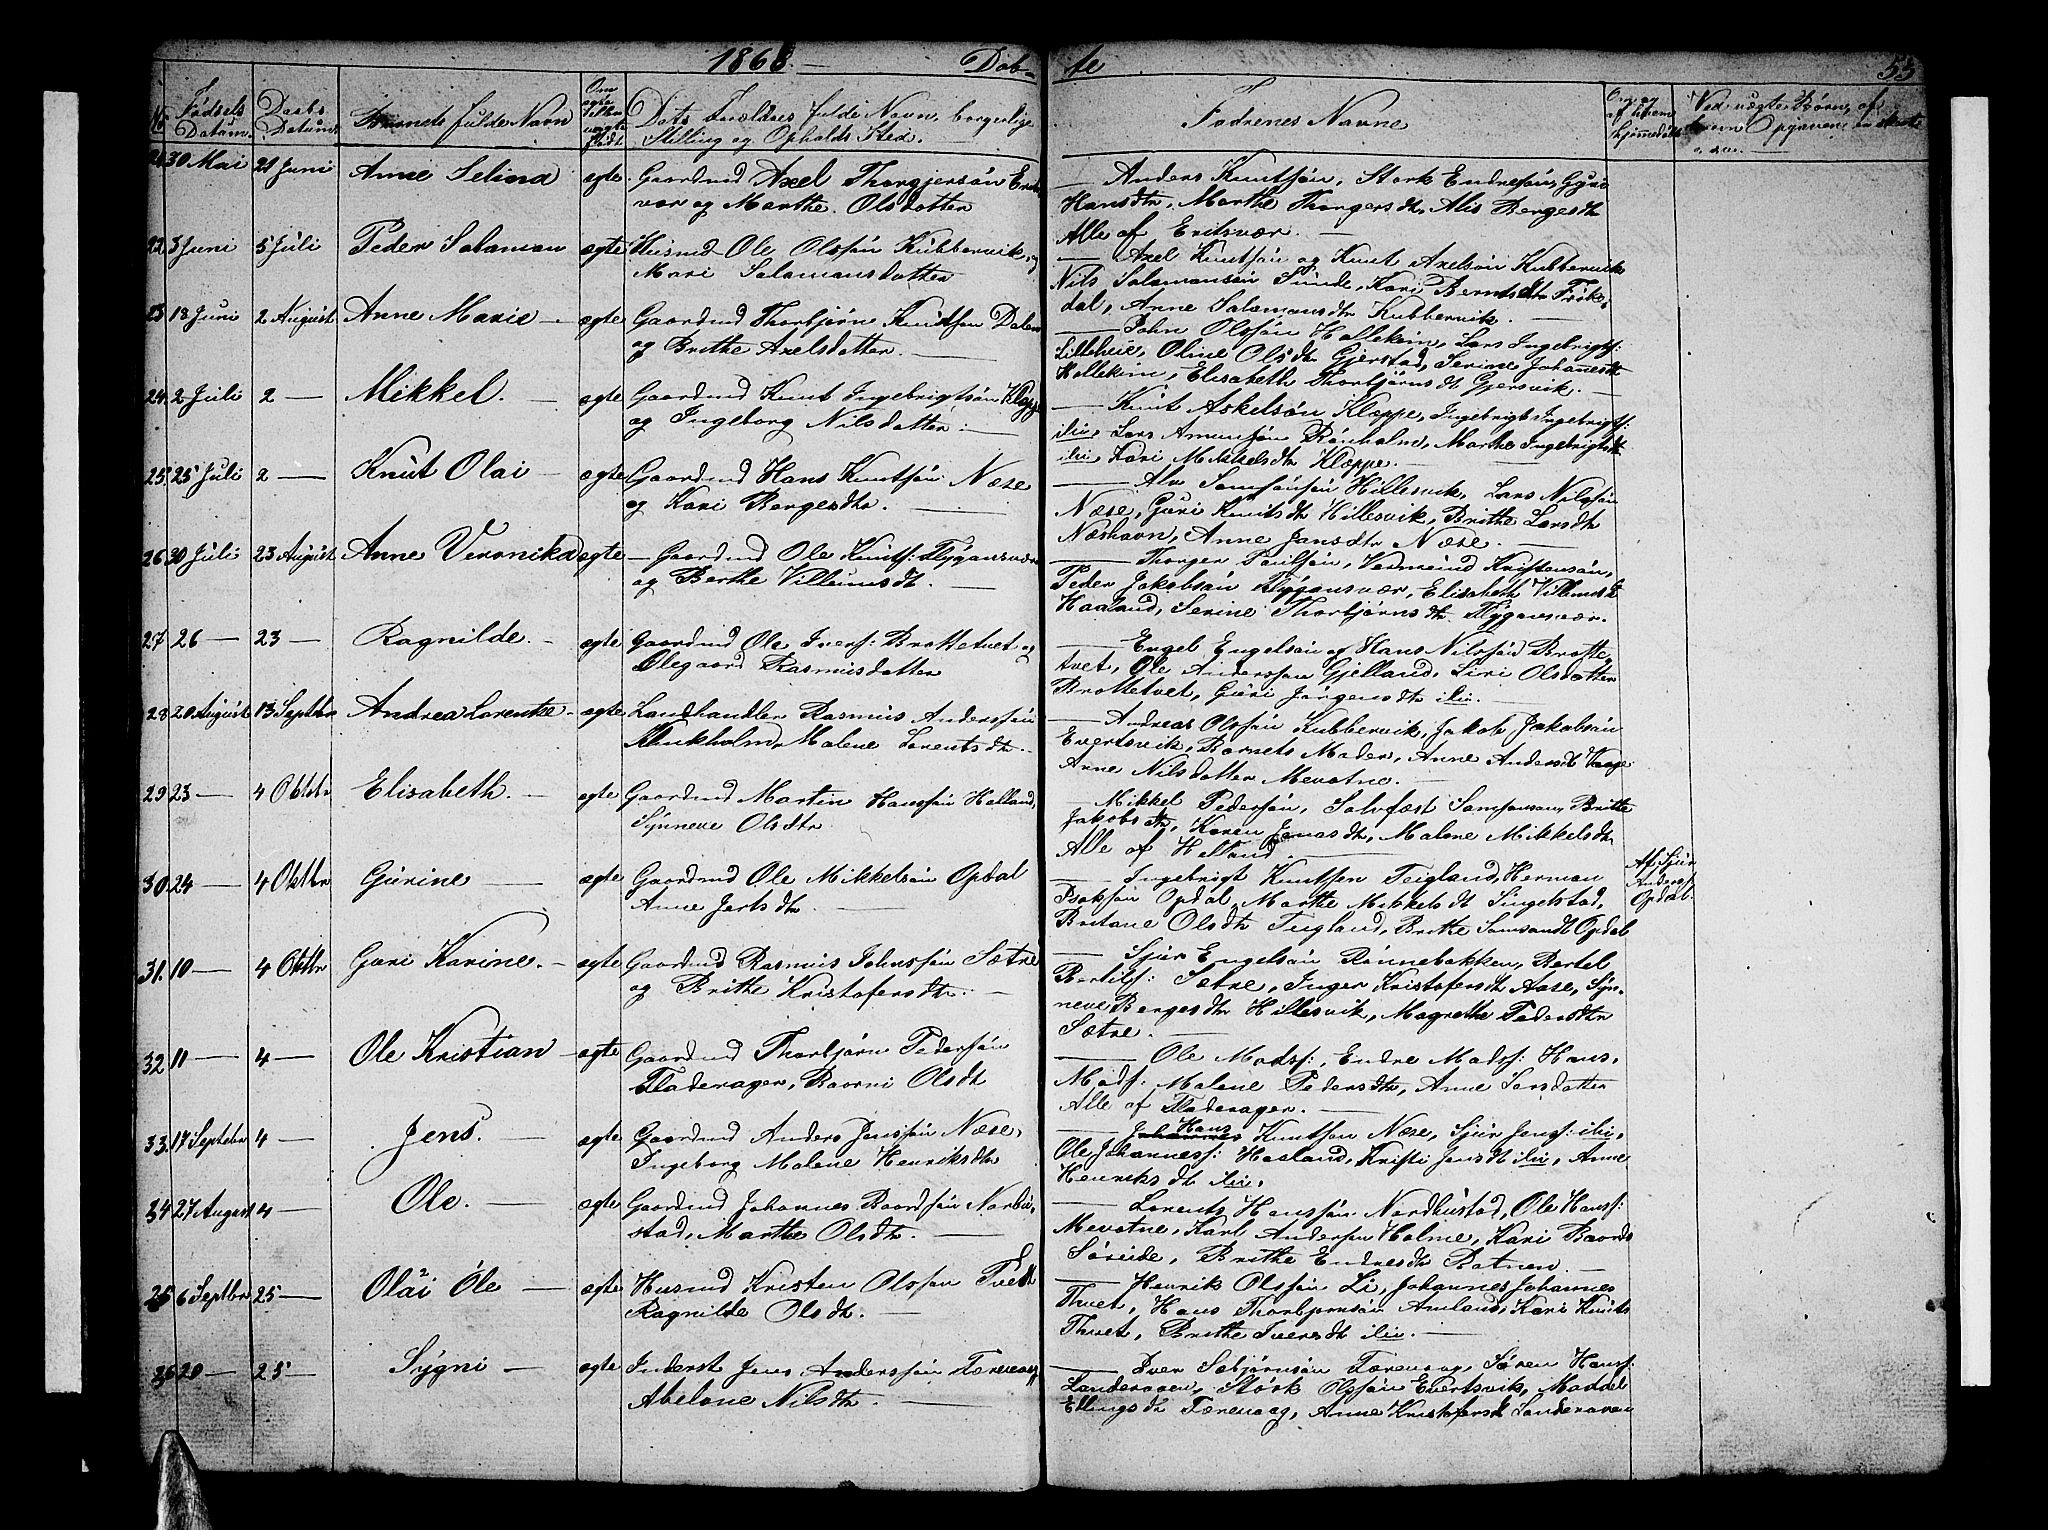 1868. — Døb-
te
53
№ Fødsels Datum. Daabs Datum. Barnets fulde Navn Om ægte eller uægte født. Dets Forældres fulde Navn, borgerlige Stilling og Opholds Sted. Fadrenes Navne Om og af hvem hjemmedøbt Ved uægte Børn, af
21 30 Mai 21 Juni Anne Selina ægte Gaardmd Axel Thorgjersøn Erits
vær og Marthe Olsdatter
— Anders Knutsøn, Stork Endresøn, Gjuri
Hansdtr, Marthe Thorgersdtr, Alis Bergesdtr
Alle af Eritsvær. —
22 3 Juni 5 Juli Peder Salaman ægte Husmd Ole Olssøn Kubbervik, og
Mari Salamansdatter
— Axel Knutsøn og Knut Axelsøn Kubbervik
Nils Salamansøn Sunde, Kari Berntsdtr Fiske-
dal, Anne Salamansdtr Kubbervik. —
23 18 Juni 2 August Anne Marie — ægte Gaardmd Thorbjørn Knutsen Dalen
og Brithe Axelsdatter. —
— John Olssøn Hallekim, Lars Ingebrigtf:
Littelvie, Oline Olsdtr Gjerstad, Serine Johannesdtr
Hellekim, Elisabeth Thorbjørnsdt Gjersvik. —
24 2 Juli 2 — Mikkel. — ægte Gaardmd Knut Ingebrigtsøn Kleppe
og Ingeborg Nilsdatter. —
— Knut Askelsøn Kleppe, Ingebrigt Ingebrigtf:
ibi, Lars Amunsøn Rønholm, Marthe Ingebrigtsdt
ibi, Kari Mikkelsdtr Kleppe. —
25 25 Juli 2 — Knut Olai — ægte Gaardmd Hans Knutsøn Næse
og Kari Bergesdtr. —
— Alv Samsonsøn Hillesvik, Lars Nilssøn
Næse, Guri Knutsdtr Hillesvik, Brithe Larsdtr
Næshavn, Anne Jansdtr Næse. —
26 30 Juli 23 August Anne Veronika ægte — Gaardmd Ole Knutf: Flygansvær
og Berthe Villumsdt. —
— Thorger Paulsøn, Vedmund Kristensøn,
Peder Jakobsøn Flygansvær, Elisabeth Villumsdt
Haaland, Serine Thorbjørnsdt Flygansvær.
27 26 — 23 — Ragnilde. — ægte Gaardmd Ole Iversf: Brottetvet og
Olegaard Rasmusdatter
— Engel Engelsøn og Hans Nilssøn Brotte-
tvet, Ole Anderssøn Gjelland, Siri Olsdatter
Brottetvet, Guri Jørgensdtr ibi. —
28 20 August 13 Septbr Andrea Lorentze — ægte Landhandler Rasmus Anderssøn
Klinkholm, Malene Lorentsdtr. —
— Andreas Olssøn Kubbervik, Jakob Jakobsøn
Evertsvik, Barnets Moder, Anne Andersdt Vaage
Anne Nilsdatter Mevatne. —
29 23 — 4 Oktbr Elisabeth. — ægte Gaardmd Martin Hanssøn Helland,
Synneve Olsdtr.
— Mikkel Pedersøn, Salvfæst Samsonsøn, Brithe
Jakobsdtr, Karen Jonasdtr, Malene Mikkelsdtr
Alle af Helland. —
30 24 — 4 Oktbr Gurine — ægte Gaardmd Ole Mikkelsøn Opdal
Anne Jertsdtr —
— Ingebrigt Knutssøn Teigland, Herman
Isaksøn Opdal, Marthe Mikkelsdt Singelstad,
Britane Olsdtr Teigland, Brithe Samsonsdt Opdal
Af Sjur
Andersf:
Opdal.
31 10 — 4 Oktbr Guri Karine. — ægte Gaardmd Rasmus Johnssøn Sætre
og Brithe Kristofersdtr. —
— Sjur Engelsøn Rønnebakken, Bertel
Bertilsf: Sætre, Inger Kristofersdtr Aase, Syn-
neve Bergesdtr Hillesvik, Magrethe Pedersdtr
Sætre. —
32 11 — 4 — Ole Kristian — ægte Gaardmd Thorbjørn Pedersøn
Fladerager, Baarni Olsdt
— Ole Madsf:, Endre Madsf: Hans
Madsf: Malene Pedersdtr, Anne Larsdatter
Alle af Fladerager. —
33 17 Septebr 4 — Jens. — ægte Gaardmd Anders Jenssøn Næse,
Ingeborg Malene Henriksdtr
— Hans Knutsøn Næse, Sjur Jensf: ibi,
Ole Johannesf: Haaland, Kristi Jensdt ibi, Anne
Henriksdt ibi,
34 27 August 4 — Ole. — ægte Gaardmd Johannes Baardsøn Norhu-
stad, Marthe Olsdtr. —
— Lorents Hanssøn Nordhustad, Ole Hansf:
Mevatne, Karl Andersen Holme, Kari Baards
Søreide, Brithe Endresdtr Botnen. —
35 6 Septbr 25 — Olai Ole — ægte Husmd Kristen Olssøn Tvedt
Ragnilde Olsdtr. —
— Henrik Olssøn Li, Johannes Johannes
Thvet, Hans Thorbjørnsøn Amland, Kari Knuts
Thvet, Brithe Iversdt ibi. —
36 20 — 25 — Sygni — ægte Inderst Jens Anderssøn Færevaag
Abelone Nilsdtr. —
— Iver Sæbjørnsøn Færevaag, Søren Hansf:
Landeraaen, Størk Olssøn Evertsvik, Maddel
Ellingsdt Færevaag, Anne Kristofersdt Landeraaen